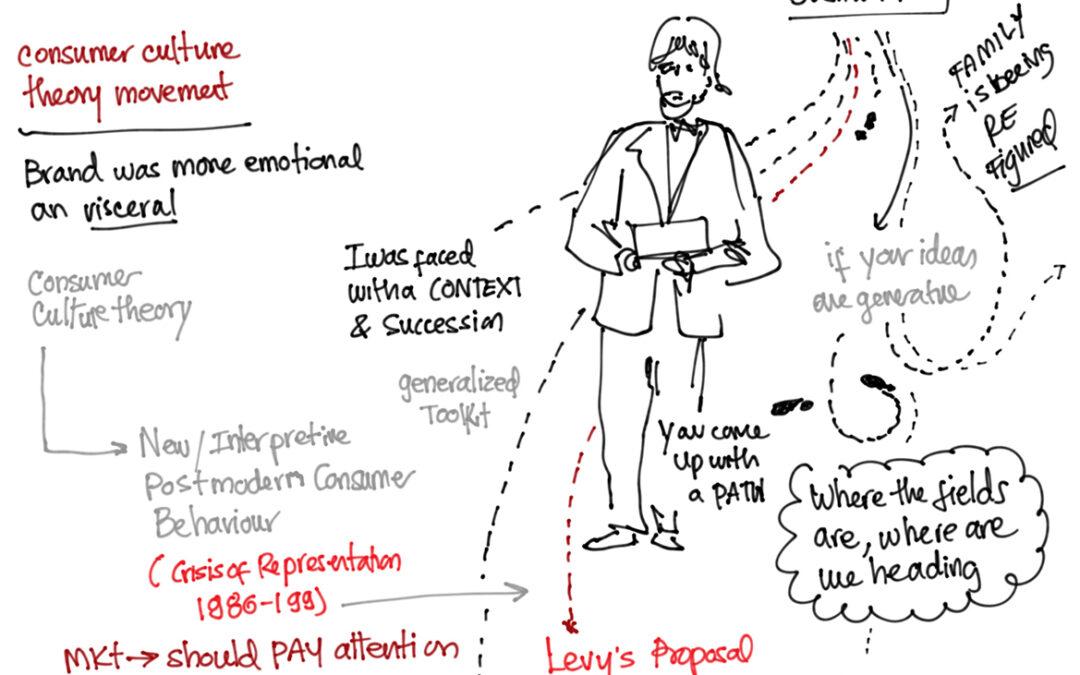 consumer culture
theory movement
Brand was more emotional
an visceral
Consumer
Culture theory
New/Interpretive
Postmodern Consumer
Behaviour
(Crisis of Representation
1986-199)
MKt → should PAY attention
I was faced
with a CONTEXT
& Succession
generalized
Toolkit
You come
up with
a PATH
Levy's Proposal
FAMILY
is beeing
RE
Figured
if your ideas
are generative
Where the fields
are, where are
we heading